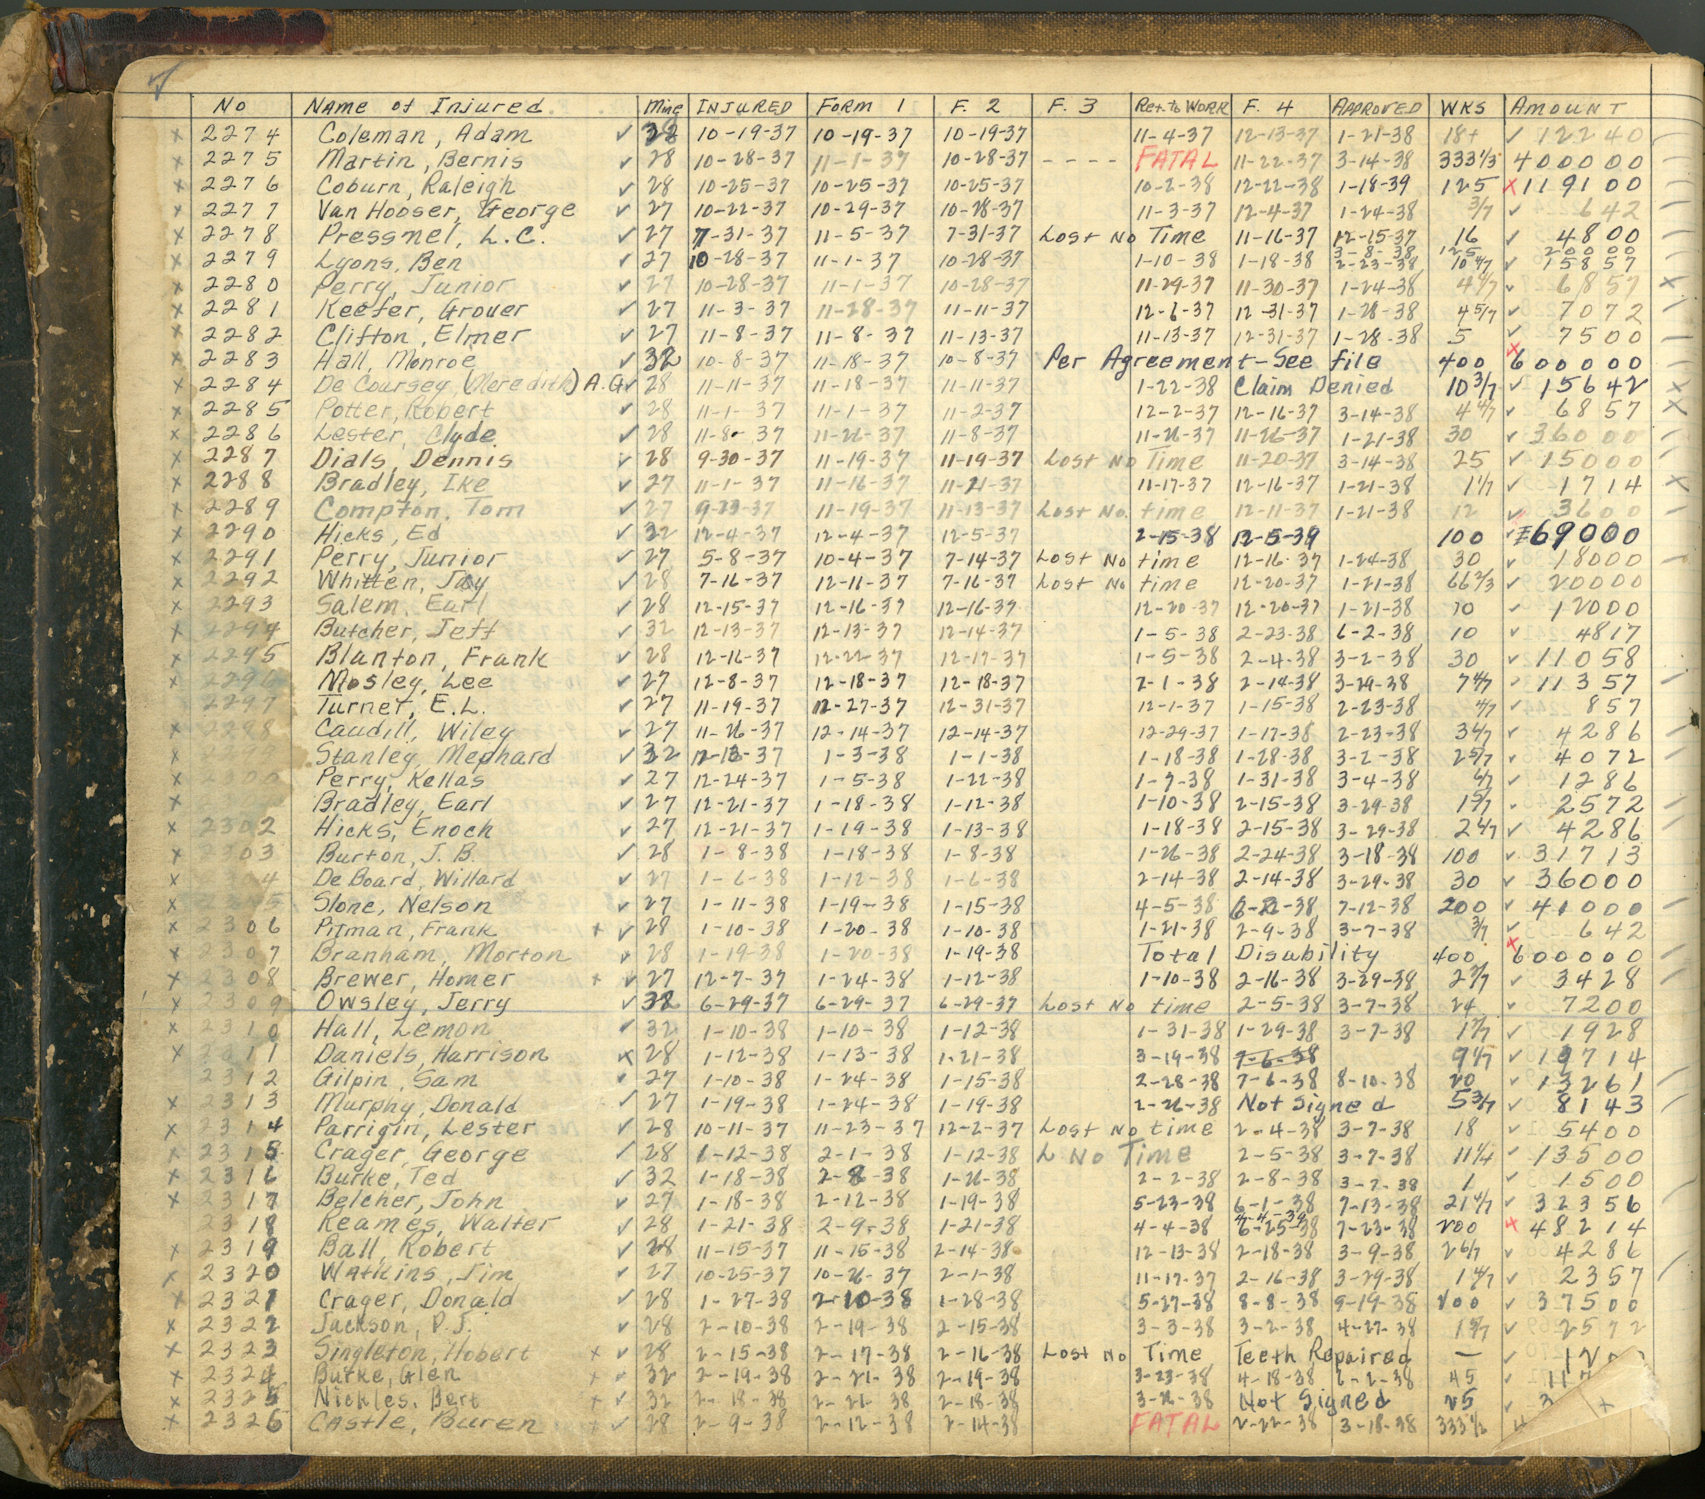 No Name of Injured Mine INJURED FORM 1 F. 2 F. 3 Ret. to WORK F. 4 APPROVED WKS AMOUNT
x 2274 Coleman, Adam ✓ 28 10-19-37 10-19-37 10-19-37 11-4-37 12-13-37 1-21-38 18+ ✓ 12240
x 2275 Martin, Bernis ✓ 28 10-28-37 11-1-37 10-28-37 - - - - FATAL 11-22-37 3-14-38 333 1/3 400000
x 2276 Coburn, Raleigh ✓ 28 10-25-37 10-25-37 10-25-37 10-2-38 12-22-38 1-18-39 125 x 119100
x 2277 Van Hooser, George ✓ 27 10-22-37 10-29-37 10-28-37 11-3-37 12-4-37 1-24-38 3/7 ✓ 642
x 2278 Pressnel, L.C. ✓ 27 7-31-37 11-5-37 7-31-37 Lost No Time 11-16-37 12-15-37 16 ✓ 4800
3-8-38 125 20000
x 2279 Lyons, Ben ✓ 27 10-28-37 11-1-37 10-28-37 1-10-38 1-18-38 2-23-38 10 4/7 ✓ 15857
x 2280 Perry, Junior ✓ 27 10-28-37 11-1-37 10-28-37 11-29-37 11-30-37 1-24-38 4 4/7 ✓ 6857 x
x 2281 Keefer, Grover ✓ 27 11-3-37 11-28-37 11-11-37 12-6-37 12-31-37 1-28-38 4 5/7 ✓ 7072
x 2282 Clifton, Elmer ✓ 27 11-8-37 11-8-37 11-13-37 11-13-37 12-31-37 1-28-38 5 ✓ 7500
x 2283 Hall, Monroe ✓ 32 10-8-37 11-18-37 10-8-37 Per Agreement - See file 400 x 600000
x 2284 De Coursey, (Meredith) A.G. ✓ 28 11-11-37 11-18-37 11-11-37 1-22-38 Claim Denied 10 3/7 ✓ 15642 x
x 2285 Potter, Robert ✓ 28 11-1-37 11-1-37 11-2-37 12-2-37 12-16-37 3-14-38 4 4/7 ✓ 6857 x
x 2286 Lester, Clyde ✓ 28 11-8-37 11-26-37 11-8-37 11-26-37 11-26-37 1-21-38 30 ✓ 36000
x 2287 Dials, Dennis ✓ 28 9-30-37 11-19-37 11-19-37 Lost No Time 11-20-37 3-14-38 25 ✓ 15000
x 2288 Bradley, Ike ✓ 27 11-1-37 11-16-37 11-21-37 11-17-37 12-16-37 1-21-38 1 1/7 ✓ 1714 x
x 2289 Compton, Tom ✓ 27 9-23-37 11-19-37 11-13-37 Lost No. time 12-11-37 1-21-38 12 3600
x 2290 Hicks, Ed ✓ 32 12-4-37 12-4-37 12-5-37 2-15-38 12-5-39 100 69000
x 2291 Perry, Junior ✓ 27 5-8-37 10-4-37 7-14-37 Lost No time 12-16-37 1-24-38 30 ✓ 18000
x 2292 Whitten, Jay ✓ 28 7-16-37 12-11-37 7-16-37 Lost No time 12-20-37 1-21-38 66 2/3 ✓ 20000
x 2293 Salem, Earl ✓ 28 12-15-37 12-16-37 12-16-37 12-20-37 12-20-37 1-21-38 10 ✓ 12000
x 2294 Butcher, Jeff ✓ 32 12-13-37 12-13-37 12-14-37 1-5-38 2-23-38 6-2-38 10 ✓ 4817
x 2295 Blanton, Frank ✓ 28 12-16-37 12-22-37 12-17-37 1-5-38 2-4-38 3-2-38 30 ✓ 11058
x 2296 Mosley, Lee ✓ 27 12-8-37 12-18-37 12-18-37 2-1-38 2-14-38 3-29-38 7 4/7 ✓ 11357
2297 Turner, E.L. ✓ 27 11-19-37 12-27-37 12-31-37 12-1-37 1-15-38 2-23-38 4/7 ✓ 857
x 2298 Caudill, Wiley ✓ 27 11-26-37 12-14-37 12-14-37 12-29-37 1-17-38 2-23-38 3 4/7 ✓ 4286
x Stanley, Mephard ✓ 32 12-13-37 1-3-38 1-1-38 1-18-38 1-28-38 3-2-38 2 5/7 ✓ 4072
x 2300 Perry, Kellas ✓ 27 12-24-37 1-5-38 1-22-38 1-7-38 1-31-38 3-4-38 6/7 ✓ 1286
x Bradley, Earl ✓ 27 12-21-37 1-18-38 1-12-38 1-10-38 2-15-38 3-29-38 1 5/7 ✓ 2572
x 2302 Hicks, Enoch ✓ 27 12-21-37 1-19-38 1-13-38 1-18-38 2-15-38 3-29-38 2 6/7 ✓ 4286
x 2303 Burton, J. B. ✓ 28 1-8-38 1-18-38 1-8-38 1-26-38 2-24-38 3-18-38 100 ✓ 31713
x 04 De Board, Willard ✓ 27 1-6-38 1-12-38 1-6-38 2-14-38 2-14-38 3-29-38 30 ✓ 36000
x 2305 Slone, Nelson ✓ 27 1-11-38 1-19-38 1-15-38 4-5-38 6-22-38 7-12-38 200 ✓ 41000
x 2306 Pitman, Frank x ✓ 28 1-10-38 1-20-38 1-10-38 1-21-38 2-9-38 3-7-38 3/7 ✓ 642
x 2307 Branham, Morton ✓ 28 1-19-38 1-20-38 1-19-38 Total Disability 400 x 600000
x 2308 Brewer, Homer x ✓ 27 12-7-37 1-24-38 1-12-38 1-10-38 2-16-38 3-29-38 2 2/7 ✓ 3428
x 2309 Owsley, Jerry ✓ 32 6-29-37 6-29-37 6-29-37 Lost No time 2-5-38 3-7-38 24 ✓ 7200
x 2310 Hall, Lemon ✓ 32 1-10-38 1-10-38 1-12-38 1-31-38 1-29-38 3-7-38 1 2/7 ✓ 1928
x 2311 Daniels, Harrison x 28 1-12-38 1-13-38 1-21-38 3-19-38 7-6-38 9 1/7 ✓ 19714
2312 Gilpin, Sam ✓ 27 1-10-38 1-24-38 1-15-38 2-28-38 7-6-38 8-10-38 20 ✓ 13261
x 2313 Murphy, Donald ✓ 27 1-19-38 1-24-38 1-19-38 2-26-38 Not Signed 5 3/7 ✓ 8143
x 2314 Parrigin, Lester ✓ 28 10-11-37 11-23-37 12-2-37 Lost No time 2-4-38 3-7-38 18 ✓ 5400
x 2315 Crager, George ✓ 28 1-12-38 2-1-38 1-12-38 L No Time 2-5-38 3-7-38 11 1/4 ✓ 13500
x 2316 Burke, Ted ✓ 32 1-18-38 2-8-38 1-26-38 2-2-38 2-8-38 3-7-38 1 ✓ 1500
x 2317 Belcher, John ✓ 27 1-18-38 2-12-38 1-19-38 5-23-38 6-1-38 7-13-38 21 4/7 ✓ 32356
4-4-39
2318 Reames, Walter ✓ 28 1-21-38 2-9-38 1-21-38 4-4-38 6-25-38 7-23-38 200 x 48214
x 2319 Ball, Robert ✓ 28 11-15-37 11-15-38 2-14-38 12-13-38 2-18-38 3-9-38 2 6/7 ✓ 4286
x 2320 Watkins, Jim ✓ 27 10-25-37 10-26-37 2-1-38 11-17-37 2-16-38 3-29-38 1 4/7 ✓ 2357
x 2321 Crager, Donald ✓ 28 1-27-38 2-10-38 1-28-38 5-27-38 8-8-38 9-19-38 200 ✓ 37500
x 2322 Jackson, P.J. ✓ 28 2-10-38 2-19-38 2-15-38 3-3-38 3-2-38 4-27-38 1 5/7 ✓ 2572
x 2323 Singleton, Hobert x ✓ 28 2-15-38 2-17-38 2-16-38 Lost No Time Teeth Repaired — ✓ 120
x 2324 Burke, Glen x ✓ 32 2-19-38 2-21-38 2-19-38 3-23-38 4-18-38 6-2-38 45 ✓ 117
x 2325 Nickles, Bert x ✓ 32 2-18-38 2-21-38 2-18-38 3-21-38 Not Signed 25 ✓
x 2326 Castle, Buren x ✓ 28 2-9-38 2-12-38 2-14-38 FATAL 2-22-38 3-18-38 333 1/2